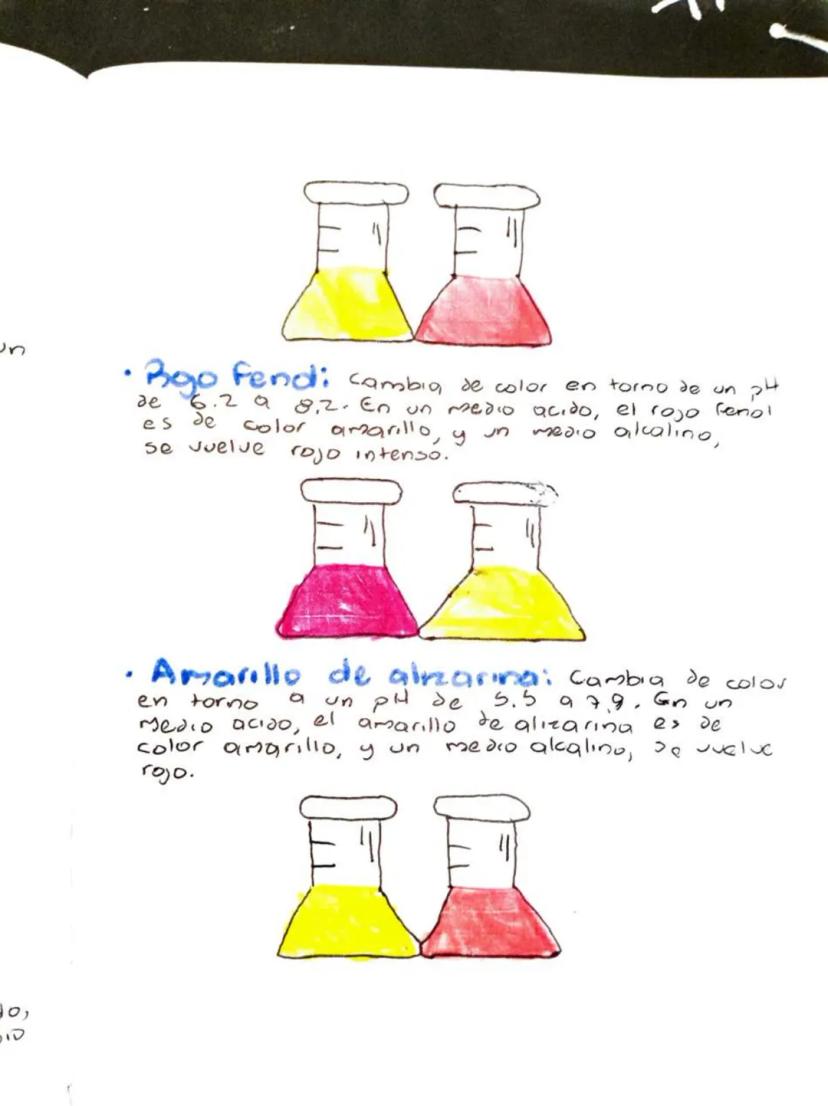 un
• Rojo Fenol: Cambia de color en torno de un pH
de 6.2 a 8.2. En un medio acido, el rojo fenol
es de color amarillo, y un medio alcalino,
se vuelve rojo intenso.
• Amarillo de alizarina: Cambia de color
en torno a un pH de 5.5 a 7.9. En un
medio acido, el amarillo de alizarina es de
color amarillo, y un medio alcalino, se vuelve
rojo.